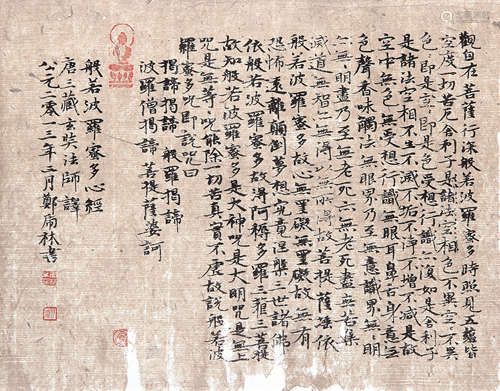 觀自在菩薩行深般若波羅蜜多時照見五蘊皆
空度一切苦厄舍利子是諸法空相色不異空〻不異
色〻即是空〻即是色受想行識亦復如是舍利子
是諸法空相不生不滅不垢不淨不增不減是故
空中無色無受想行識無眼耳鼻舌身意無
色聲香味觸法無眼界乃至無意識界無〻明
亦無〻明盡乃至無老死亦無老死盡無苦集
滅道無智亦無得以無所得故菩提薩埵依
般若波羅蜜多故心無罣礙無罣礙故無有
恐怖遠離顛倒夢想究竟涅槃三世諸佛
依般若波羅蜜多故得阿耨多羅三藐三菩提
故知般若波羅蜜多是大神咒是大明咒是無上
咒是無等〻咒能除一切苦真實不虛故說般若波
羅蜜多咒即說咒曰
揭諦揭諦 般羅揭諦
波羅僧揭諦 菩提薩婆訶
般若波羅蜜多心經
唐三藏玄奘法師譯
公元二〇一三年二月鄭林書